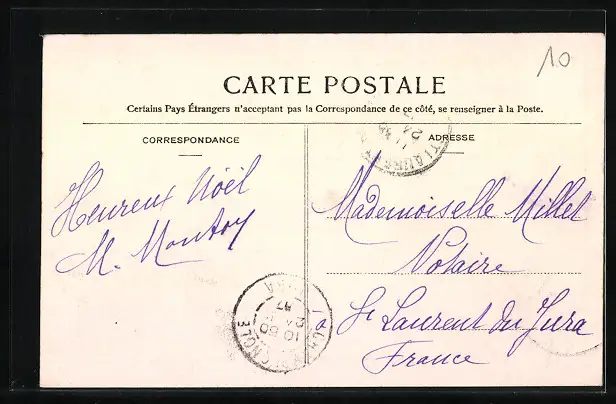 10
CARTE POSTALE
Certains Pays Étrangers n'acceptant pas la Correspondance de ce côté, se renseigner à la Poste.
CORRESPONDANCE
ADRESSE
Heureux Nöel
M. Montoy
Mademoiselle Millet
Notaire
à St Laurent du Jura
France
10 50